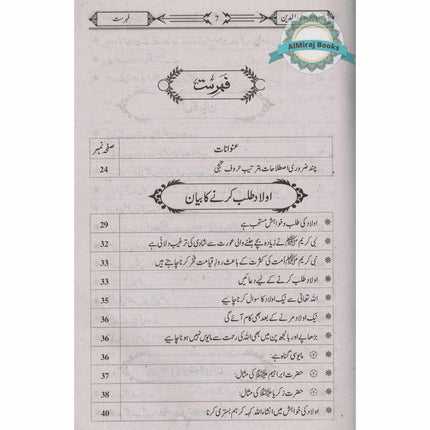 فہرست 7 والدین
AlMiraj Books
فہرست
عنوانات صفحہ نمبر
چند ضروری اصطلاحات بترتیب حروف تہجی 24
اولاد طلب کرنے کا بیان
اولاد کی طلب و خواہش مستحب ہے 29
نبی کریم ﷺ نے زیادہ بچے جننے والی عورت سے شادی کی ترغیب دلائی ہے 32
نبی کریم ﷺ اُمت کی کثرت کے باعث روزِ قیامت فخر کرنا چاہتے ہیں 33
اولاد طلب کرنے کے لیے دعائیں 33
اللہ تعالیٰ سے نیک اولاد کا سوال کرنا چاہیے 35
نیک اولاد مرنے کے بعد بھی کام آئے گی 36
بڑھاپے اور بانجھ پن میں بھی اللہ کی رحمت سے مایوس نہیں ہونا چاہیے 36
مایوسی گناہ ہے: 36
حضرت ابراہیم علیہ السلام کی مثال: 37
حضرت زکریا علیہ السلام کی مثال: 38
اولاد کی خواہش میں انشاء اللہ کہہ کر ہم بستری کرنا 40